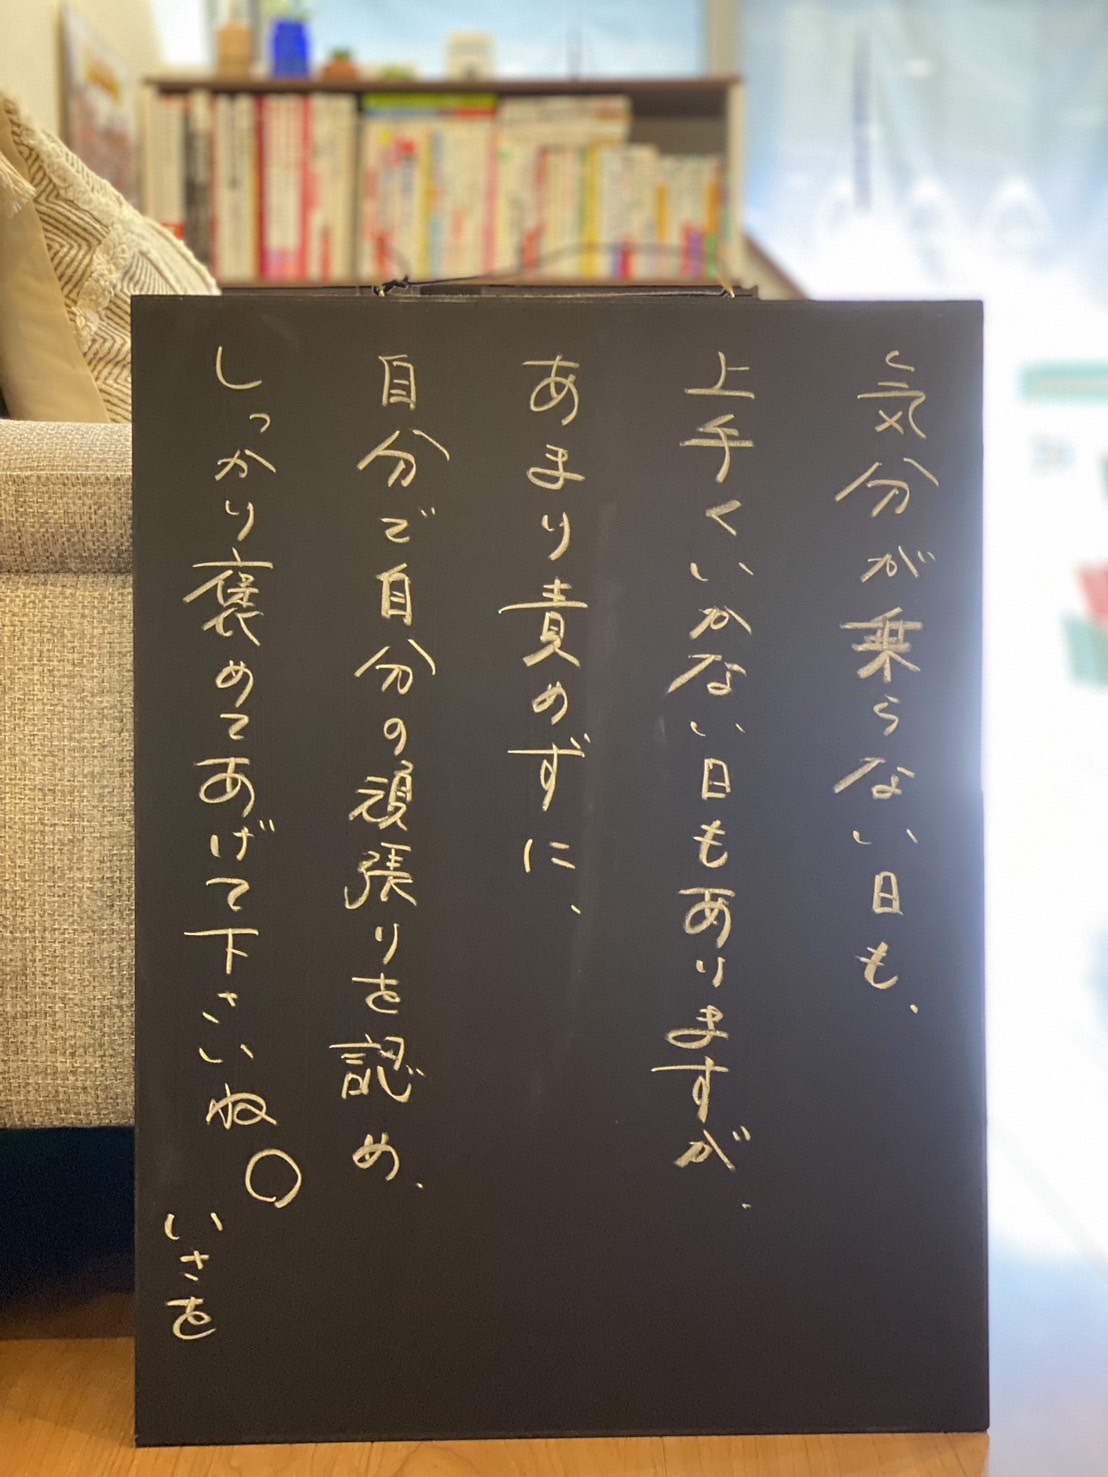 気分が乗らない日も、
上手くいかない日もありますが、
あまり責めずに、
自分で自分の頑張りを認め、
しっかり褒めてあげて下さいね○
いさを